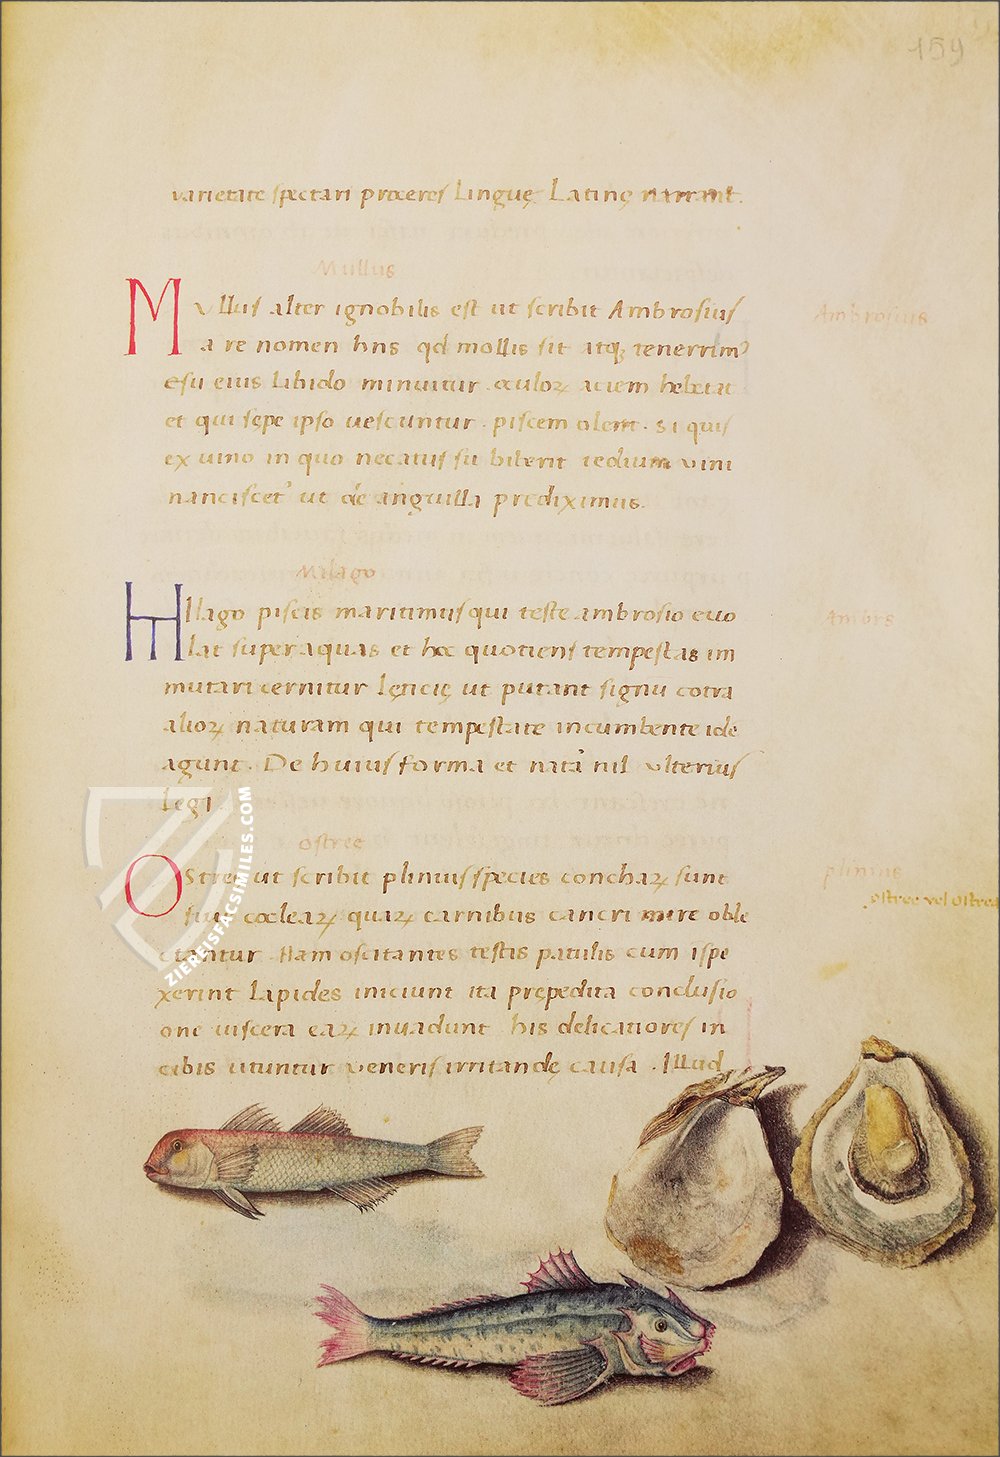 159
varietate spectari proceres Linguę Latinę narrant.
Mullus
Mullus alter ignobilis est ut scribit Ambrosius
Ambrosius
a re nomen hns qd mollis sit atqꝫ tenerrimꝰ
esu eius libido minuitur oculoꝝ aciem hebetat
et qui sepe ipso uescuntur. piscem olent. Si quis
ex uino in quo necatus sit biberit tedium vini
nanciscet' ut de anguilla prediximus.
Milago
Milago piscis maritimus qui teste ambrosio euo
Ambrs
lat super aquas et hoc quotiens tempestas im
mutari cernitur lęticię ut putant signū cōtra
alioꝝ naturam qui tempestate incumbente idē
agunt. De huius forma et natā nil vlterius
legi
ostree
Ostree ut scribit plinius species conchaꝝ sunt
plinius
ostree vel ostrea
siue cocleaꝝ quaꝝ carnibus cancri mire oble
ctantur. Nam oscitantes testis patulis cum ispe
xerint lapides iniciunt ita prępedita conclusio
one uiscera eaꝝ inuadunt his delicatiores in
cibis utuntur veneris irritandę causa. Illud
ZIEREISFACSIMILES.COM